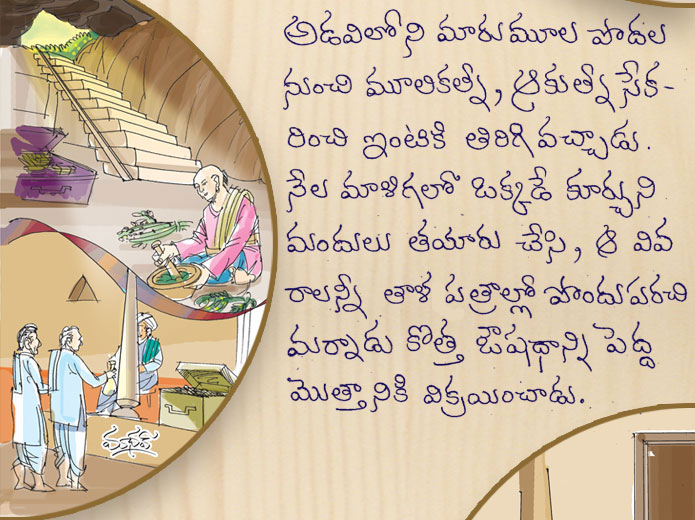 అడవిలోని మారుమూల పొదల
నుంచి మూలికల్నీ, ఆకుల్నీ సేక-
రించి ఇంటికి తిరిగి వచ్చాడు.
నేల మాళిగలో ఒక్కడే కూర్చుని
మందులు తయారు చేసి, ఆ వివ
రాలన్నీ తాళ పత్రాల్లో పొందుపరచి
మర్నాడు కొత్త ఔషధాన్ని పెద్ద
మొత్తానికి విక్రయించాడు.